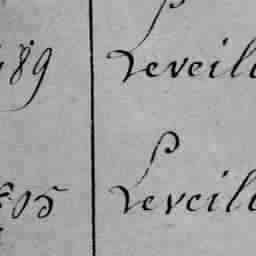 89 Leveill
05 Leveill